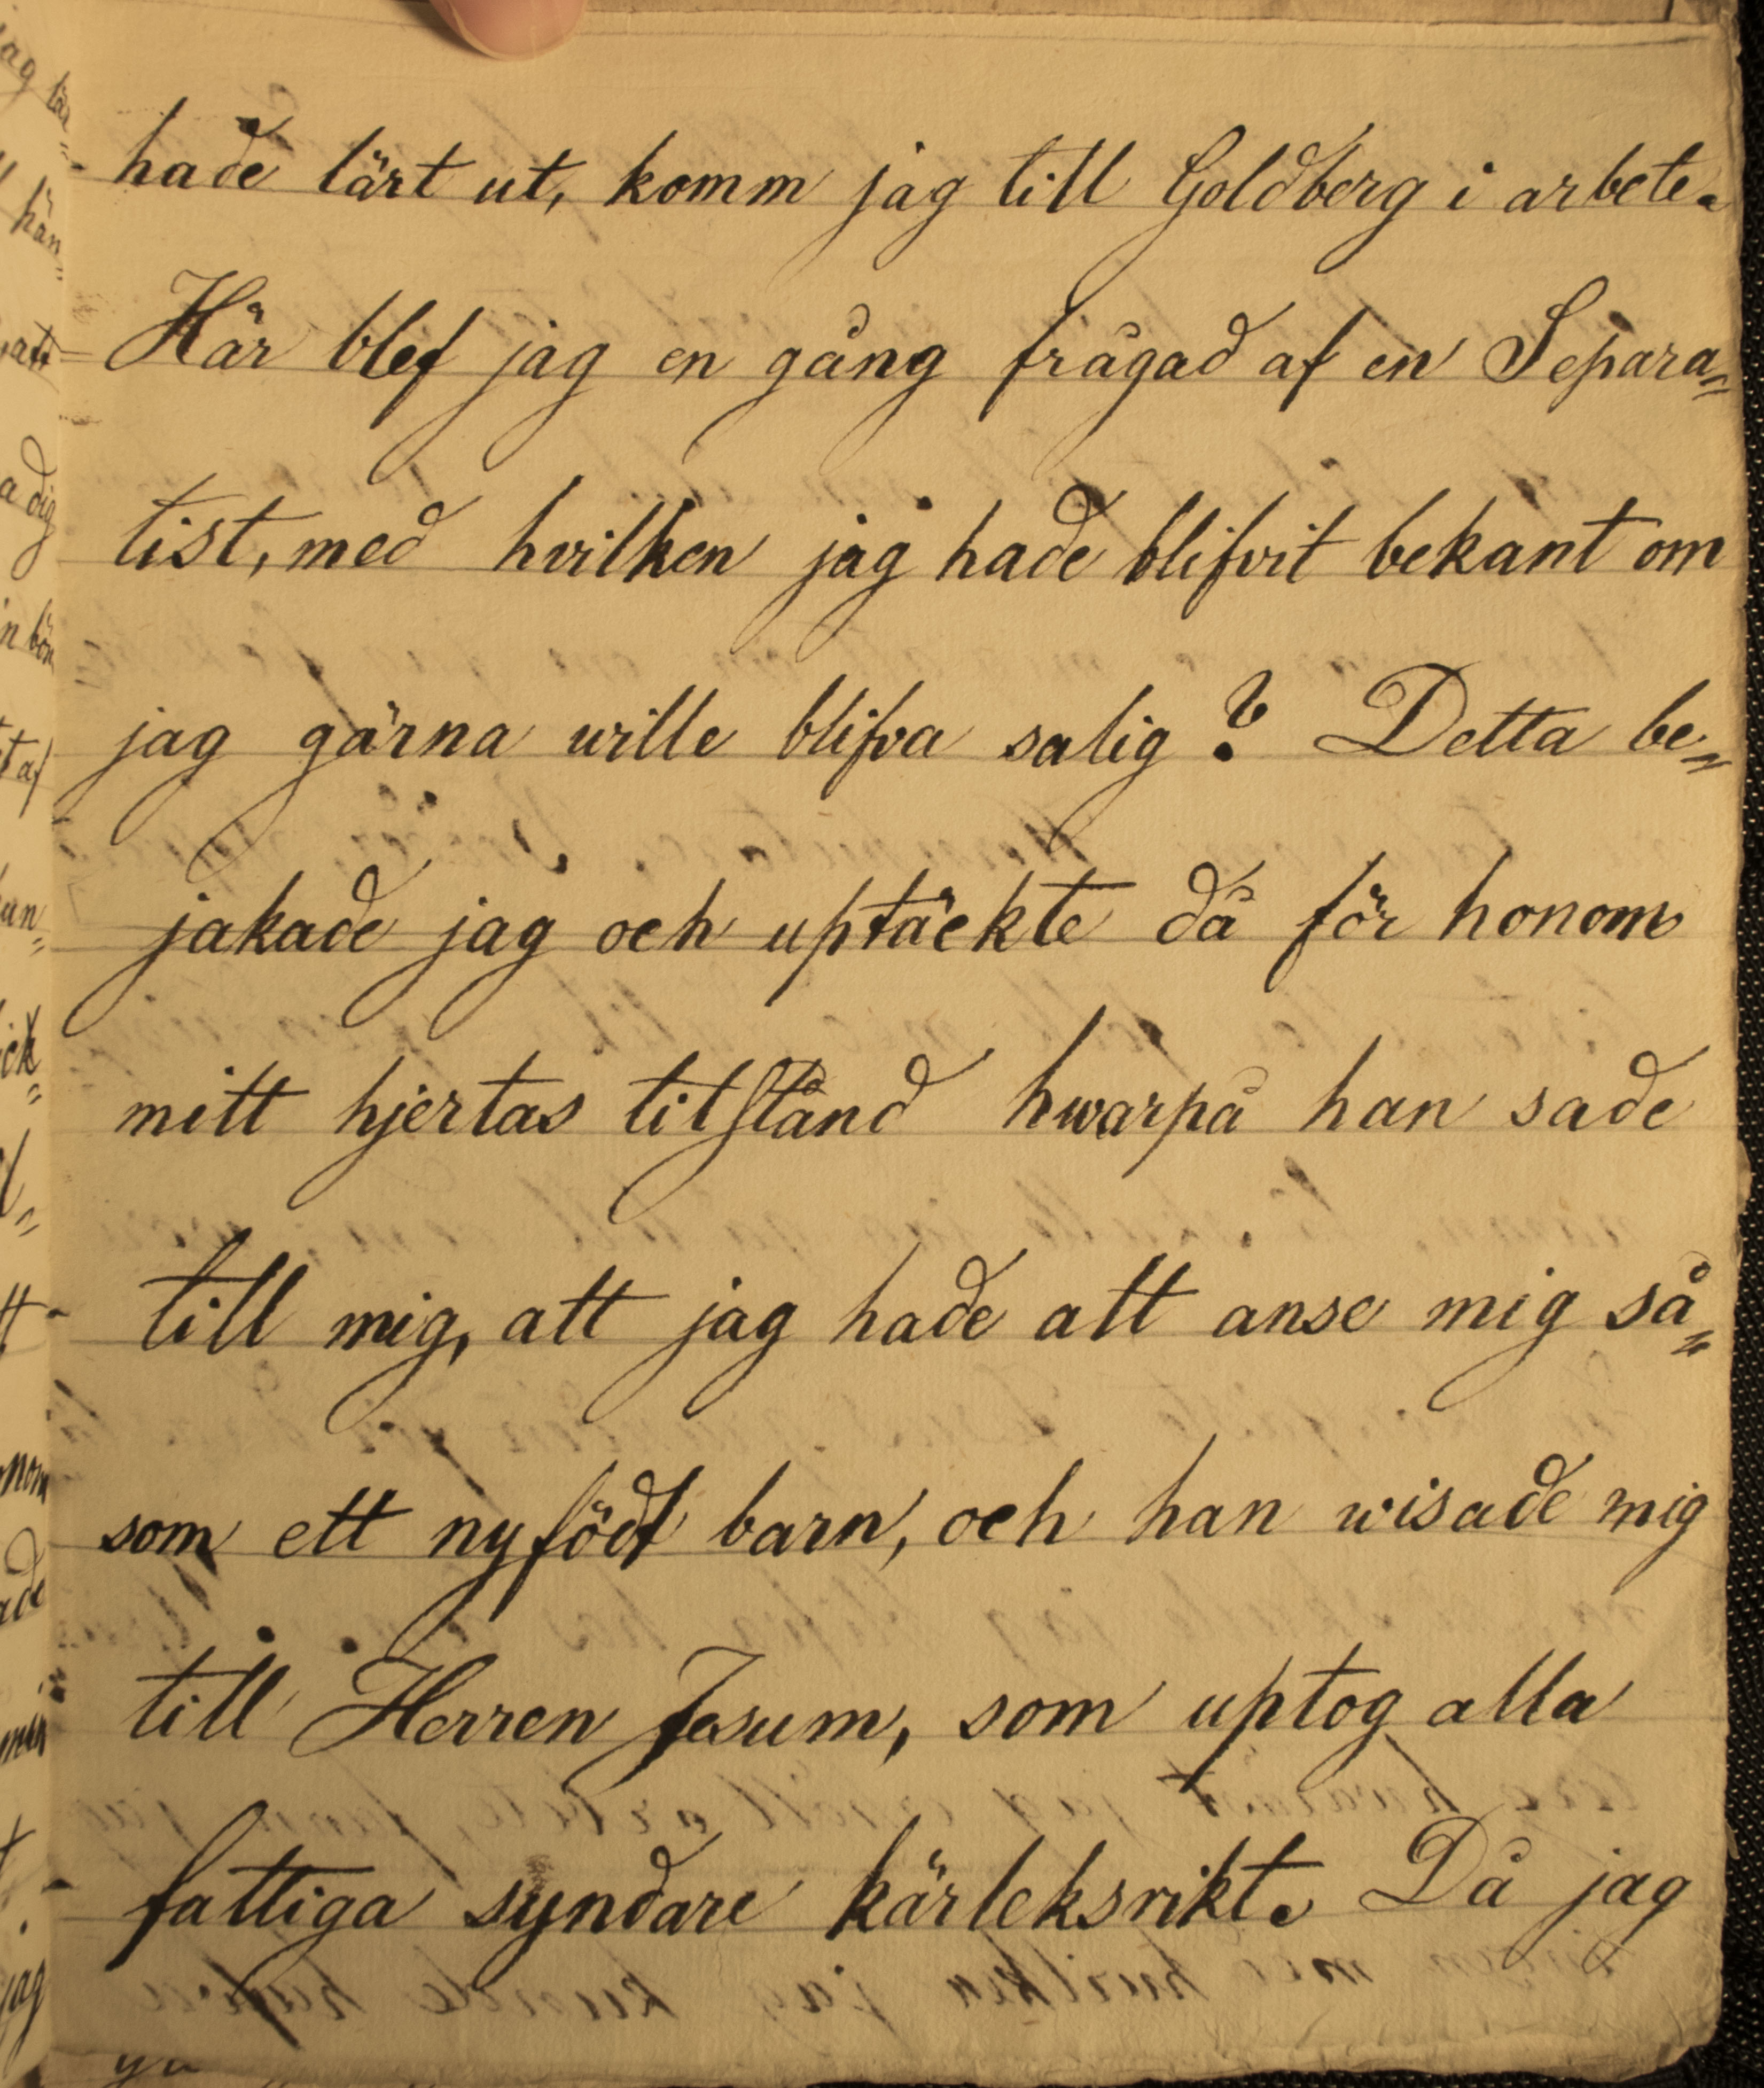 hade lärt ut, komm jag till Goldberg i arbete.
Här blef jag en gång frågad af en Separa„
tist, med hvilken jag hade blifvit bekant om
jag gärna wille blifva salig? Detta be„
jakade jag och uptäckte då för honom
mitt hjertas titstånd hwarpå han sade
till mig, att jag hade att anse mig så„
som ett nyfödt barn, och han wisade mig
till Herren Jesum, som uptog alla
fattiga syndare kärleksrikt. Då jag